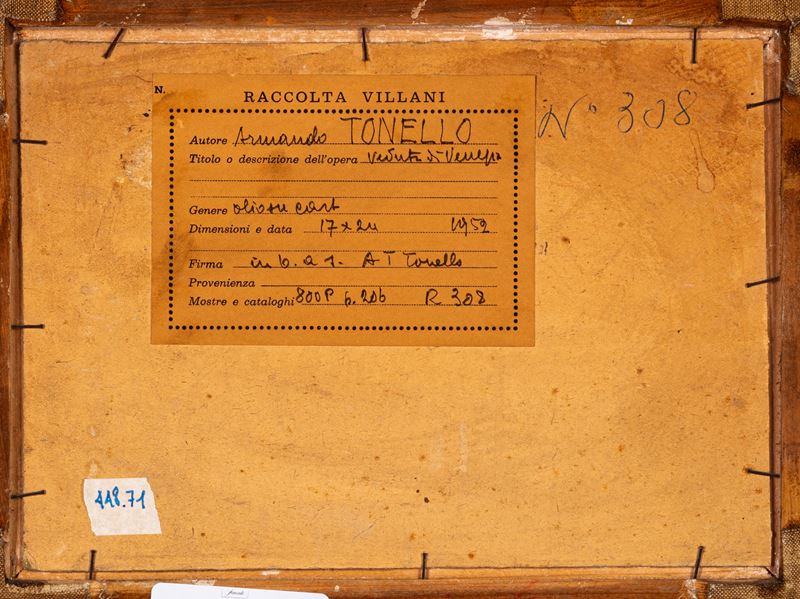 N.
RACCOLTA VILLANI
Autore Armando TONELLO
Titolo o descrizione dell'opera Veduta di Venezia
Genere olio su cart
Dimensioni e data 17 x 24 1952
Firma in b. a s. A T Tonello
Provenienza
Mostre e cataloghi 800P p. 206 R 308
N° 308
448.71